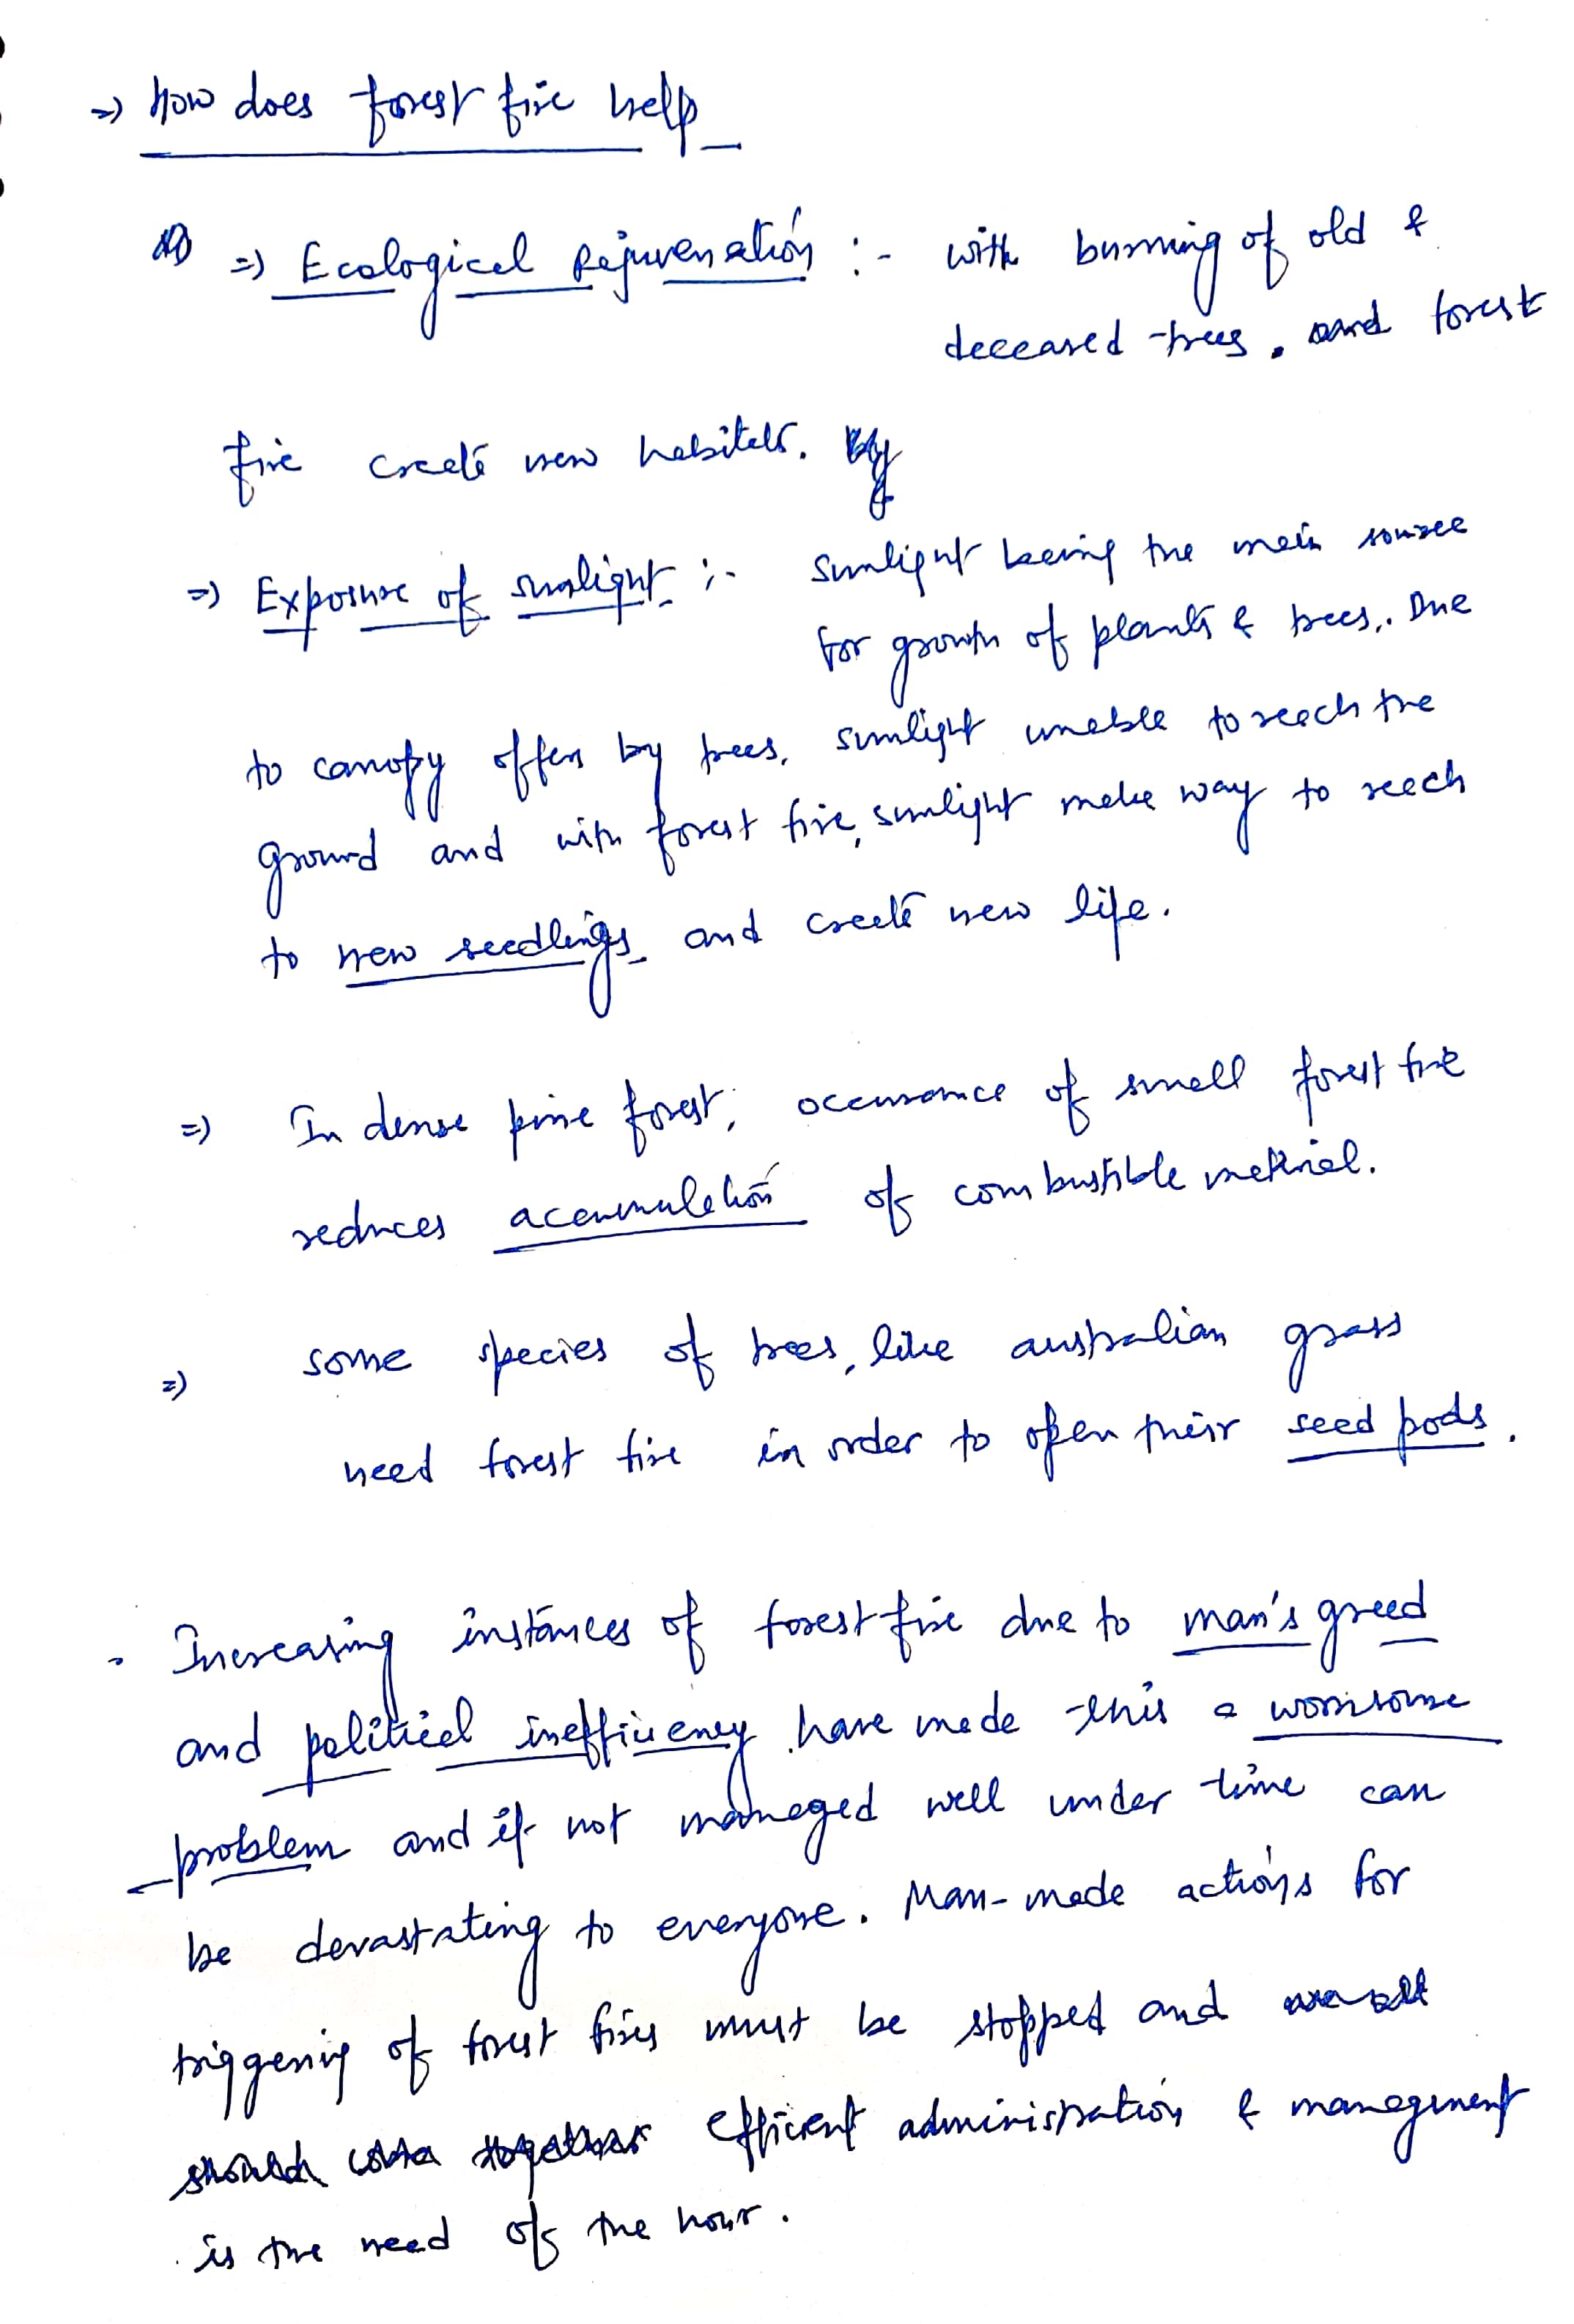 => How does forest fire help
=> Ecological Rejuvenation :- with burning of old &
deceased trees, and forest
fire create new habitats. by
=> Exposure of sunlight :- Sunlight being the main source
for growth of plants & trees. Due
to canopy offers by trees, sunlight unable to reach the
ground and with forest fire, sunlight make way to reach
to new seedlings and create new life.
=> In dense pine forest, occurance of small forest fire
reduces accumulation of combustible material.
=> some species of trees, like australian grass
need forest fire in order to open their seed pods.
• Increasing instances of forest fire due to man's greed
and political inefficiency have made this a worrisome
problem and if not managed well under time can
be devastating to everyone. Man-made actions for
triggering of forest fires must be stopped and
efficient administration & management
is the need of the hour.